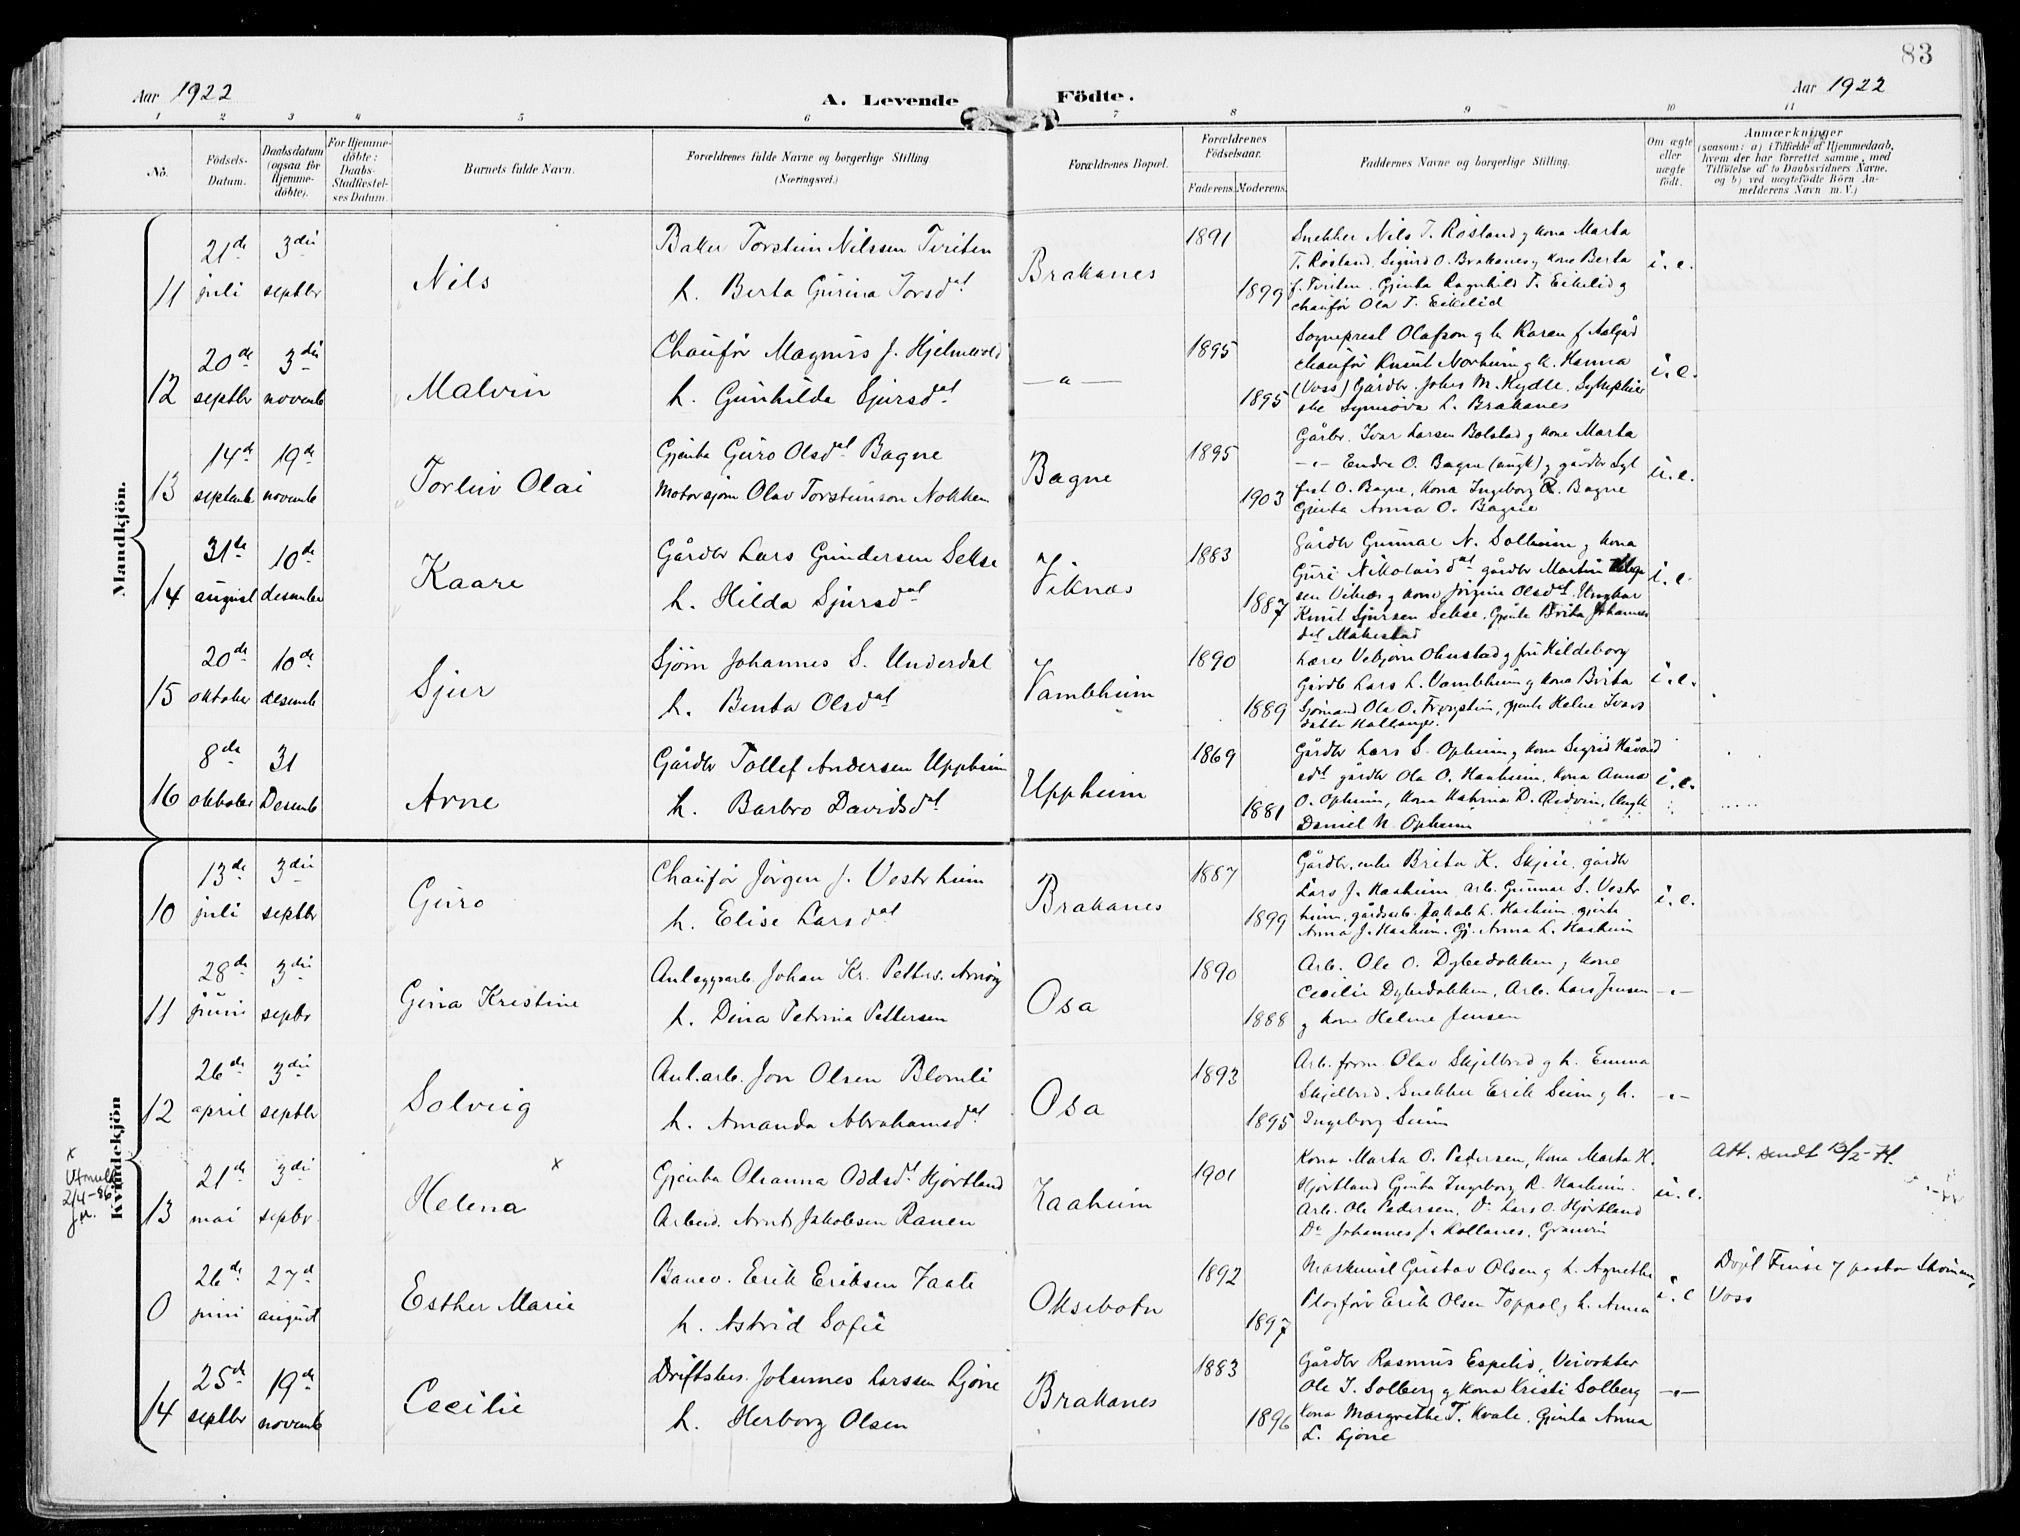 83
Aar 1922
A. Levende Födte.
Aar 1922
1 2 3 4 5 6 7 8 9 10 11
No.
Födsels-
Datum.
Daabsdatum
(ogsaa for
Hjemme-
döbte).
For Hjemme-
döbte:
Daabs-
Stadfæstel-
ses Datum.
Barnets fulde Navn.
Forældrenes fulde Navne og borgerlige Stilling
(Næringsvei.)
Forældrenes Bopæl.
Forældrenes
Födselsaar.
Faderens. Moderens.
Faddernes Navne og borgerlige Stilling.
Om ægte
eller
uægte
födt.
Anmærkninger
(saasom: a) i Tilfælde af Hjemmedaab,
hvem der har forrettet samme, med
Tilföielse af to Daabsvidners Navne,
og b) ved uægtefödte Börn An-
melderens Navn m. V.)
Mandkjön.
11
21de
juli
3die
septbr
Nils
Baker Torstein Nilssen Tveiten
h. Berta Gurina Torsdat
Brakanes
1891
1899
Snekker Nils T. Røsland g kona Marta
T. Røsland, Sigurd O. Brakanes g kone Berta
f. Tveiten. Gjenta Ragnhild T. Eikelid g
chaufør Ola T. Eikelid
i. e.
12
20de
septbr
3die
novemb
Malvin
Chaufør Magnus J. Hjelmevold
h. Gunhilda Sjursdat
— a —
1895
1895
Sogneprest Olafson g h. Karen f. Aalgård
chaufør Knut Norheim g h. Hanna
(Voss) Gårdbr. Johs M. Kydle,
Synnøva L. Brakanes
i. e.
13
14de
septemb
19de
novemb
Torleiv Olai
Gjenta Guro Olsdat Bagne
Motorsjøm Olav Torsteinson Nokken
Bagne
1895
1903
Gårbr. Ivar Larsen Bolstad g kone Marta
—„— Endre O. Bagne (ungk) g gårdbr Syl
fest O. Bagne, Kona Ingeborg R. Bagne
Gjenta Anna O. Bagne
u. e.
14
31te
august
10de
desember
Kaare
Gårdbr Lars Gundersen Sekse
h. Hilda Sjursdat
Viknes
1883
1887
Gårdbr Gunnar N. Solheim g kona
Guri Nikolaisdat gårdbr Martin
sen Viknes g kone Jørgine Olsdat. Ungkar
Knut Sjursen Sekse, Gjente Brita Johannes
dat Måkestad
i. e.
15
20de
oktober
10de
desemb
Sjur
Sjøm Johannes S. Underdal
h. Benta Olsdat
Vambheim
1890
1889
Lærer Vebjørn Olmstad g fru Hildeborg
Gårdbr Lars L. Vambheim g kona Brita
Sjømand Ola O. Frøystein, gjente Helene Ivars
datter
i. e.
16
8de
oktober
31
Desemb
Arne
Gårdbr Tollef Andersen Uppheim
h. Barbro Davidsdat
Uppheim
1869
1881
Gårdbr Lars S. Opheim g kone Sigrid Håvard
sdt gårdbr Ola O. Haaheim, kona Anna
O. Opheim, kona Katrina D. Ungk
Daniel N. Opheim
i. e.
Kvindekjön
10
13de
juli
3die
septbr
Guro
Chaufør Jørgen J. Vestrheim
h. Elise Larsdat
Brakanes
1887
1899
Gårdbr. enke Brita K. Skjeie, gårdbr
Lars J. Haaheim, arb. Gunnar S. Vestr
heim, gårdsarb. Jakob L. Haaheim, gjente
Anna J. Haaheim. Gj. Anna L. Haaheim
i. e.
11
28de
juni
3die
septbr
Gina Kristine
Anleggsarb. Johan Kr. Petters. Arnøy
h. Dina Petrina Pettersen
Osa
1890
1888
Arb. Ole O. Dybedokken g kone
Cecilie Dybedokken, Arb. Lars Jensen
g kone Helene Jensen
—„—
12
26de
april
3die
septbr
Solveig
Anl.arb. Jon Olsen Blomli
h. Amanda Abrahamsdat
Osa
1893
1895
Arb. form. Olav Skjelbred g h. Emma
Skjelbred, Snekker Erik Seim g h.
Ingeborg Seim
—„—
x
Utmeldt
2/4-86
13
21de
mai
3die
septbr.
Helena x
Gjenta Oleanna Oddsdt Hjørtland
Arbeid. Arnt Jakobsen Ranen
Haaheim
1901
Kona Marta O. Pedersen, Kona Marta H.
Hjørtland Gjenta Ingeborg R. Haaheim.
Arb. Ole Pedersen, Do Lars O. Hjørtland
Do Johannes J. Kollanes, Granvin
u. e.
Att. sendt 13/2-
0
26de
juni
27d
august
Esther Marie
Banev. Erik Eriksen Faate
h. Astrid Sofie
Oksebotn
1892
1897
Maskinist Gustav Olsen g h. Agnethe
Plogfører Erik Olsen Toppol g h. Anna
i. e
Døpt Finse af pastor
Voss
14
25de
septbr
19de
novemb
Cecilie
Driftsbes. Johannes Larssen Ljone
h. Herborg Olsen
Brakanes
1883
1896
Gårdbr Rasmus Espelid, Veivokter
Ole I. Solberg g kona Kristi Solberg
Kona Margrethe T. Kvale, Gjenta Anna
L. Ljone
—„—